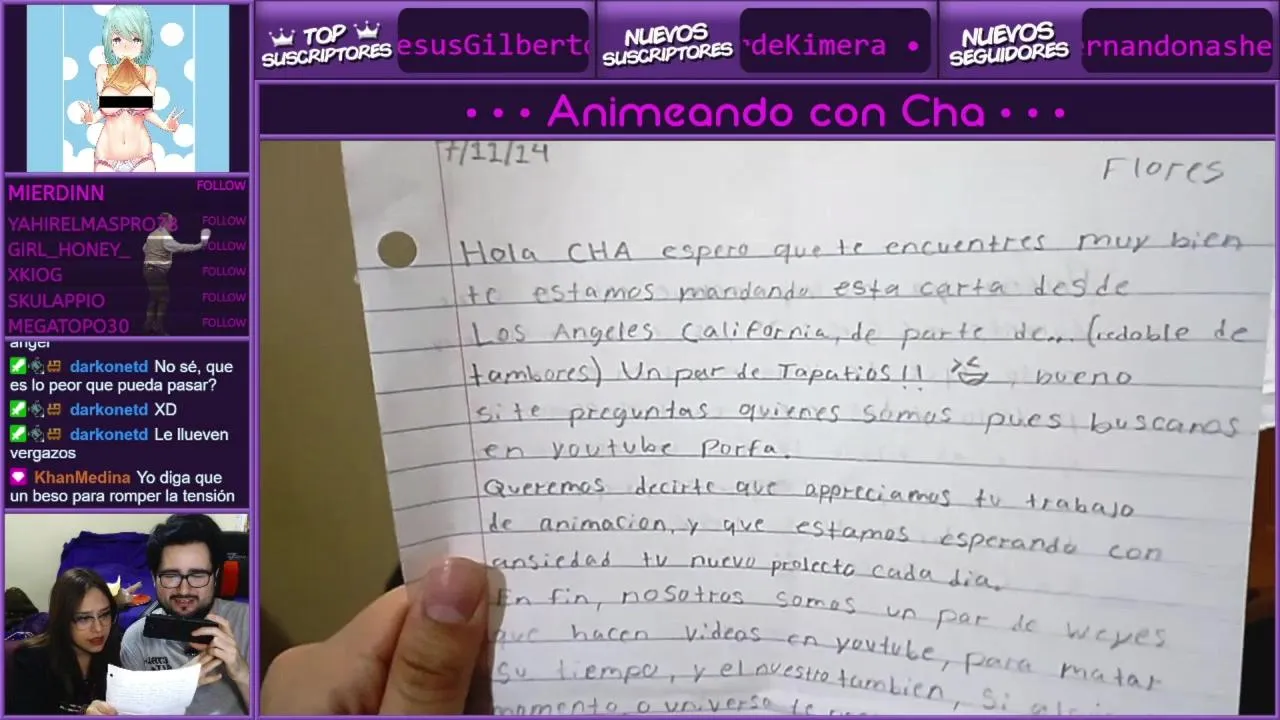 TOP SUSCRIPTORES
esusGilberto
NUEVOS SUSCRIPTORES
rdeKimera •
NUEVOS SEGUIDORES
ernandonashe
• • • Animeando con Cha • • •
MIERDINN FOLLOW
YAHIRELMASPRO78 FOLLOW
GIRL_HONEY_ FOLLOW
XKIOG FOLLOW
SKULAPPIO FOLLOW
MEGATOPO30 FOLLOW
angel
darkonetd No sé, que
es lo peor que pueda pasar?
darkonetd XD
darkonetd Le llueven
vergazos
KhanMedina Yo diga que
un beso para romper la tensión
7/11/14
Flores
Hola CHA espero que te encuentres muy bien
te estamos mandando esta carta desde
Los Angeles California, de parte de... (redoble de
tambores) Un par de Tapatios!! , bueno
si te preguntas quienes somos pues buscanos
en youtube Porfa.
Queremos decirte que appreciamos tu trabajo
de animacion, y que estamos esperando con
ansiedad tu nuevo prolecto cada dia.
En fin, nosotros somos un par de weyes
que hacen videos en youtube, para matar
su tiempo, y el nuestro tambien, si
momento o universo te